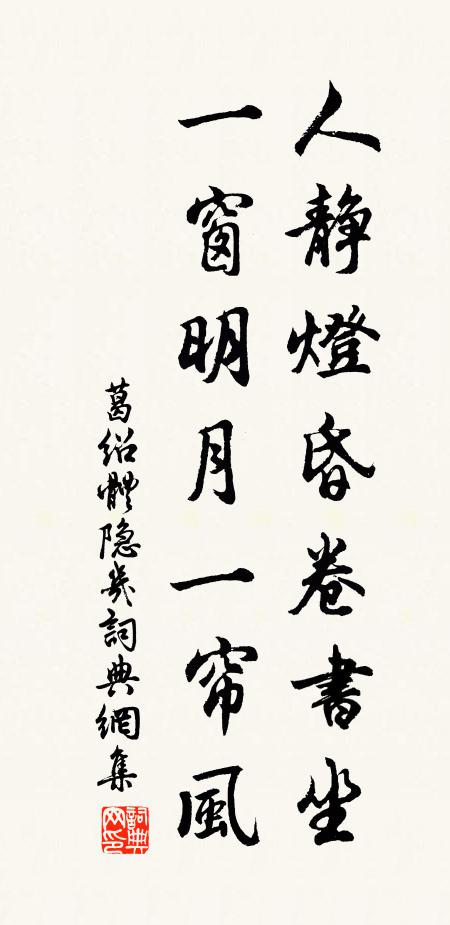 人靜燈昏卷書坐
一窗明月一帘風
葛紹體隱几詞典網集
詞典網印